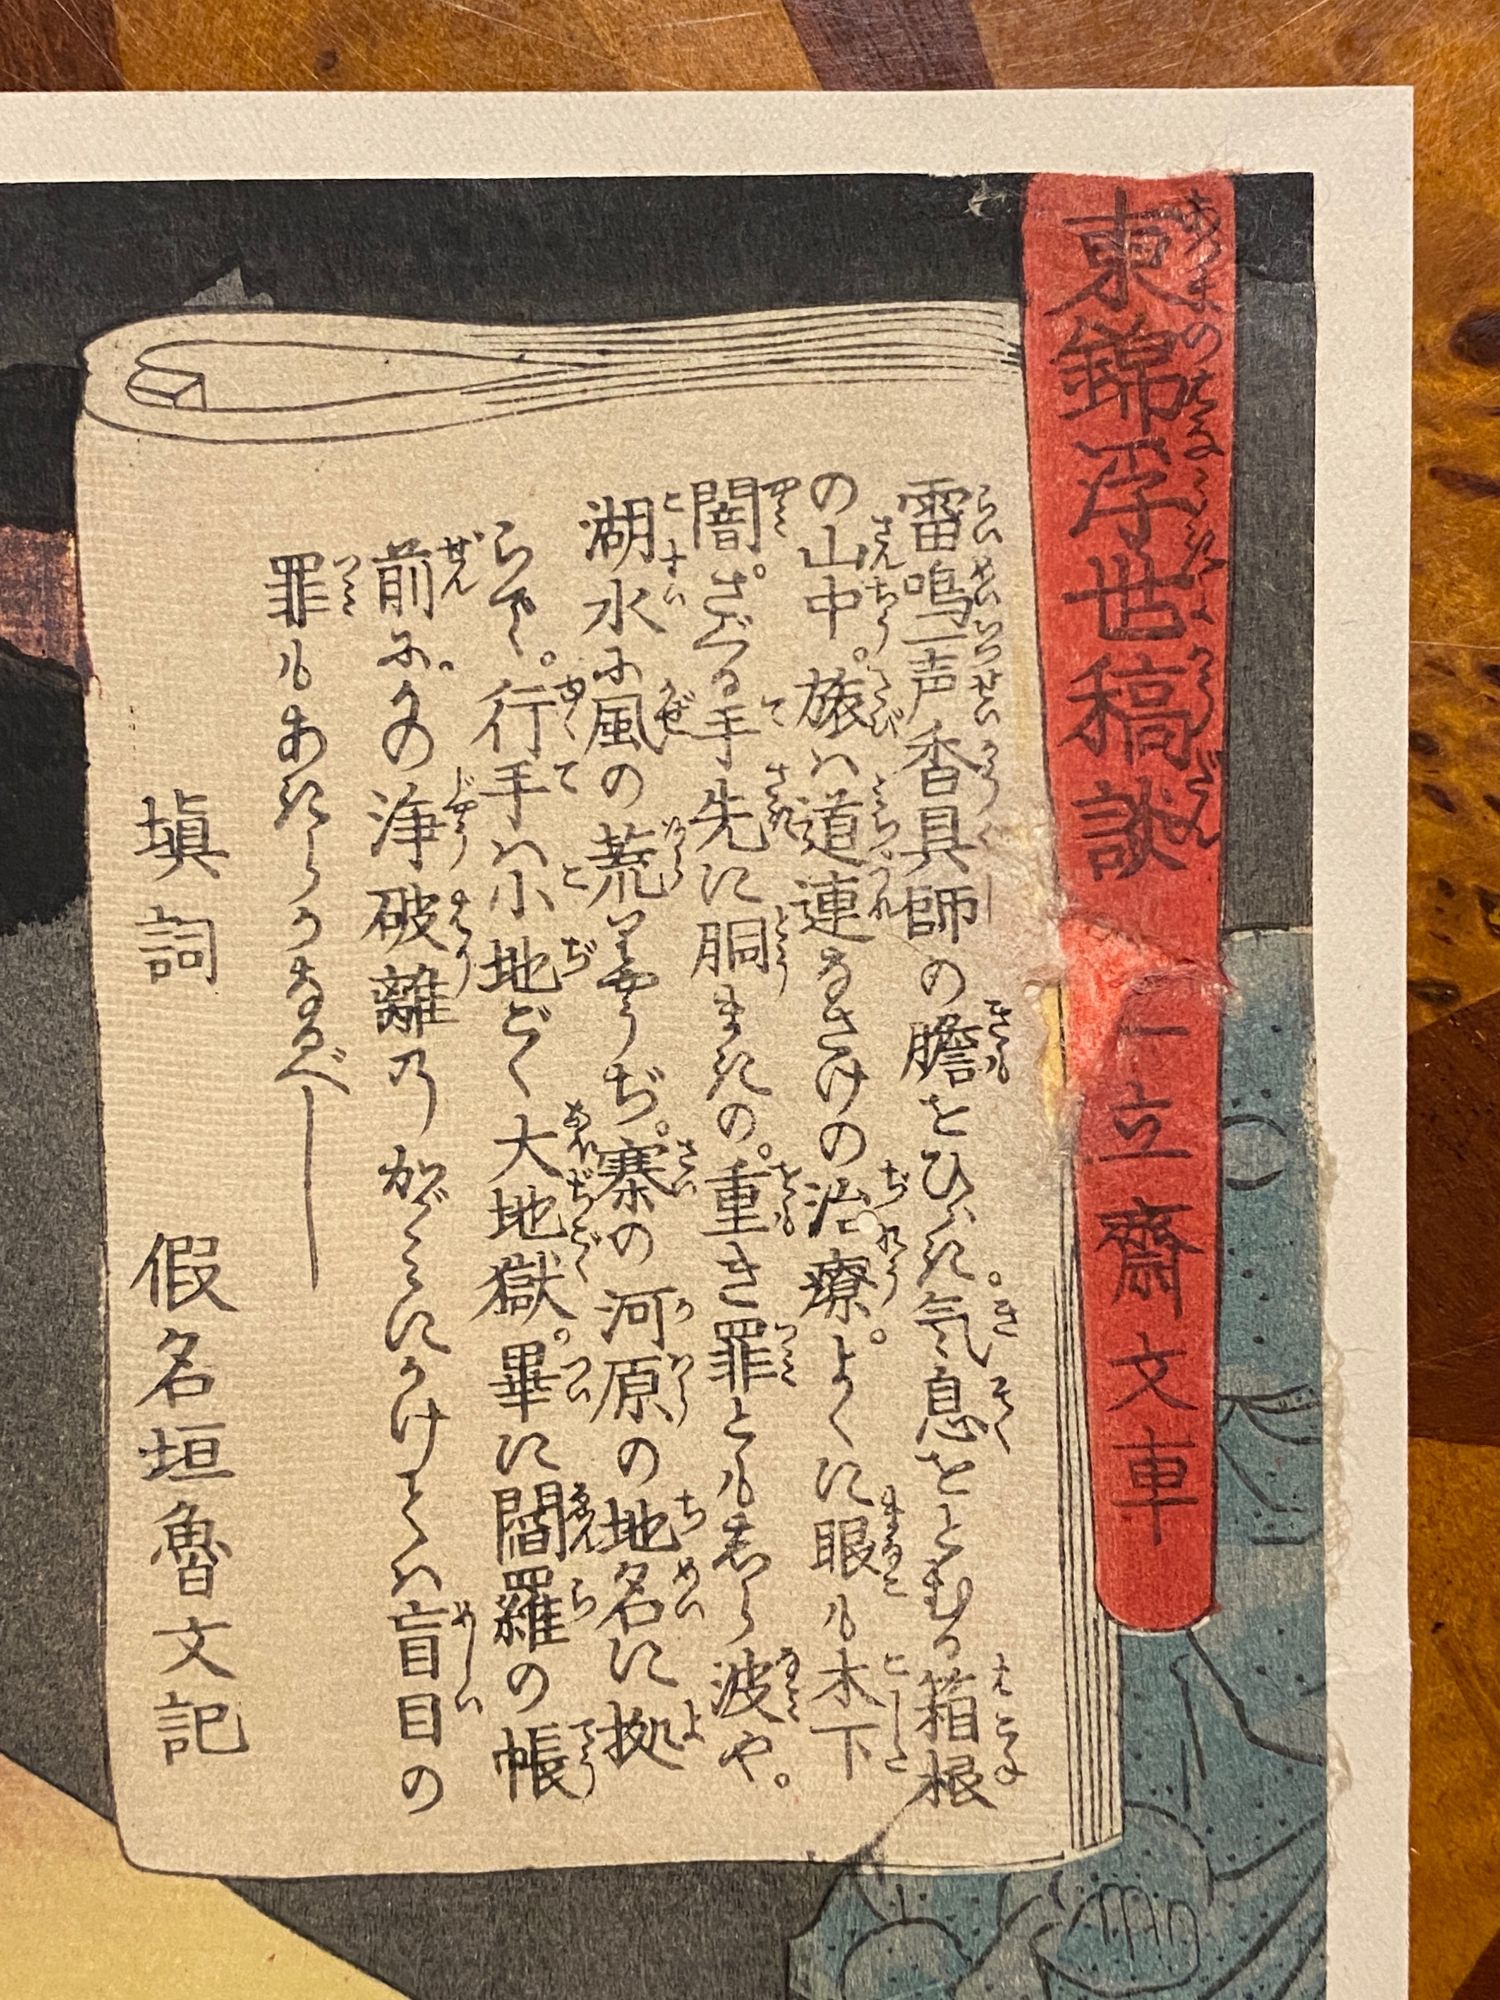 東錦浮世稿談 仁立齋文車
あづまのはなうきよかうだん
雷鳴一声香具師の膽をひしぎ。気息をとむる箱根
の山中。旅ハ道連なさけの治療。よくに眼も木下
闇。さぐる手先に胴まきの。重き罪とハしら波や。
湖水に風の荒
ぢ。寨の河原の地名に拠
らで。行手ハ小地ごく大地獄。畢に閻羅の帳
前に。の浄破離の かゞみにかけてハ盲目の
罪もあきらかなるべし
塡詞 假名垣魯文記